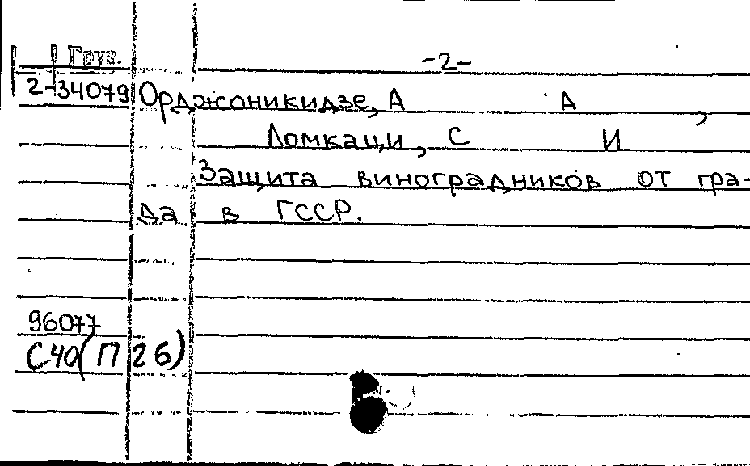 Груз. -2-
2-34079 Орджоникидзе, А А ,
Ломкаци, С И
Защита виноградников от гра-
да в ГССР.
96077
С40(П26)